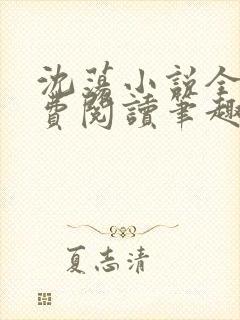 沈蕩小說全
費閱讀筆趣
夏志清